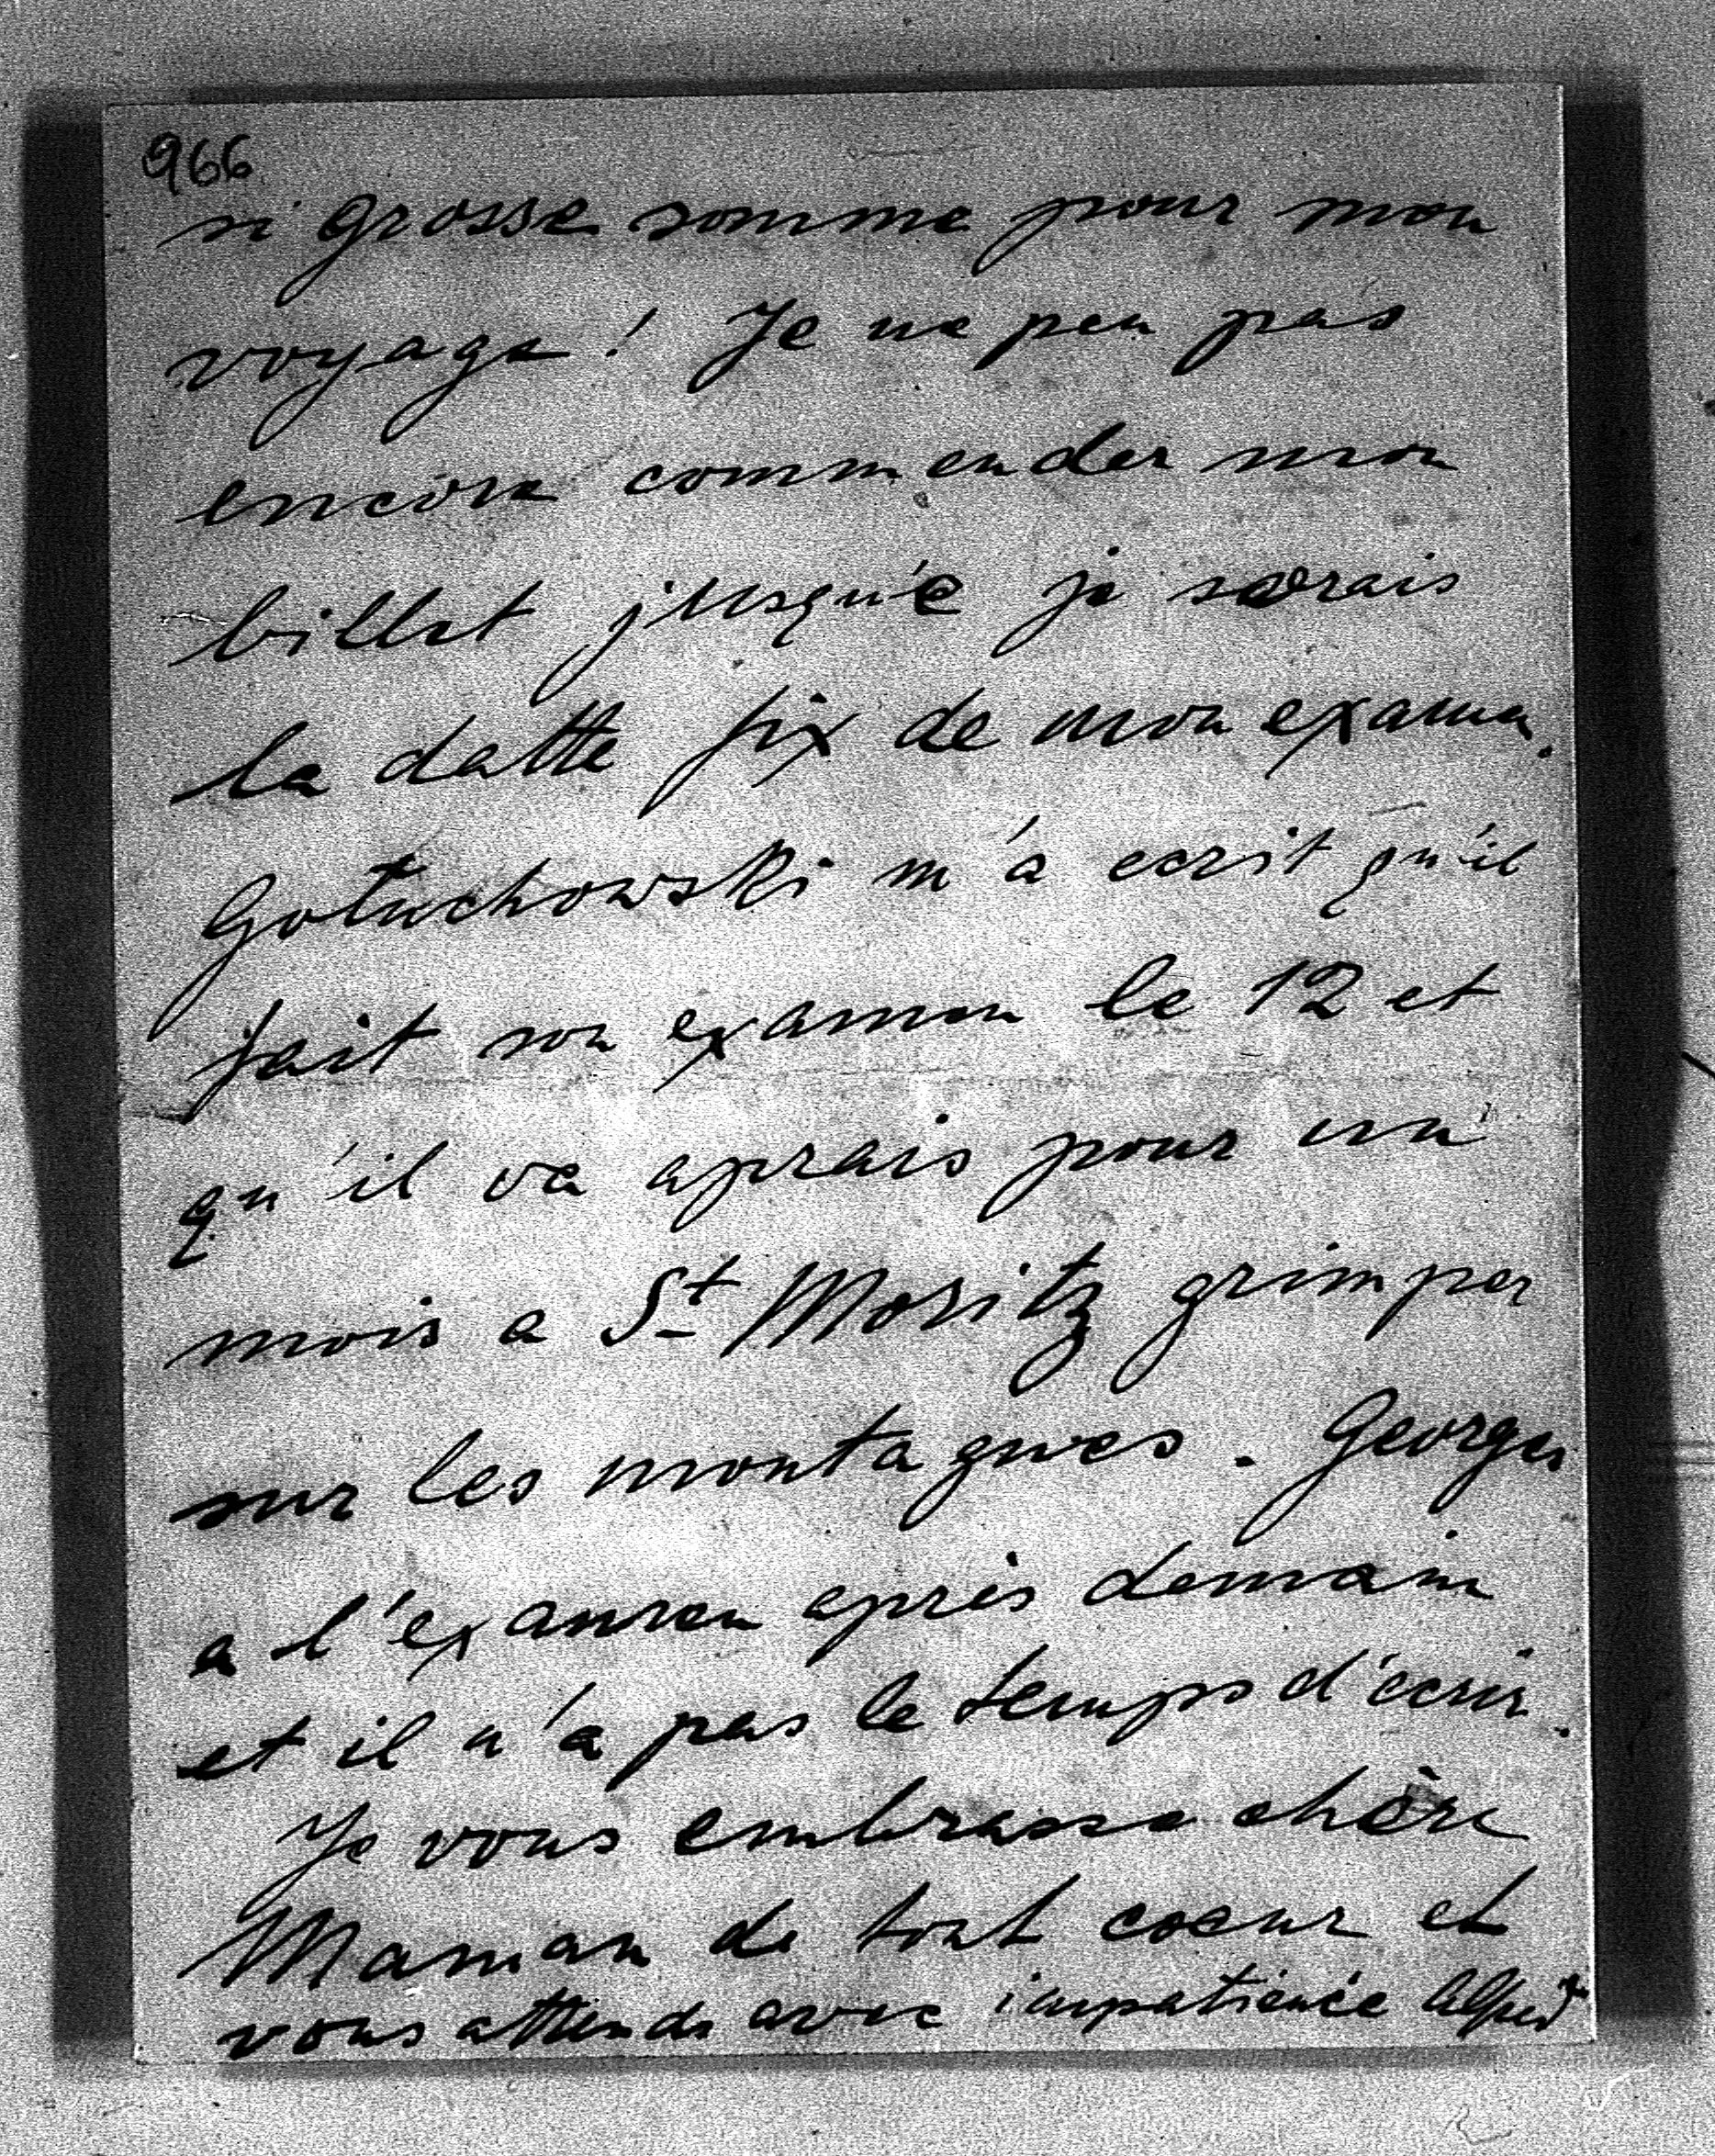 966
si grosse somme pour mon
voyage ! Je ne peu pas
encore commender mon
billet jusqu'e je saurais
la datte fix de mon examen.
Gołuchowski m'a ecrit qu'il
fait son examen le 12 et
qu'il va aprais pour un
mois a St Moritz grimper
sur les montagnes. Georges
a l'examen après demain
et il n'a pas le temps d'écrir.
Je vous embrasse chère
Maman de tout coeur et
vous attends avec impatience Alfred